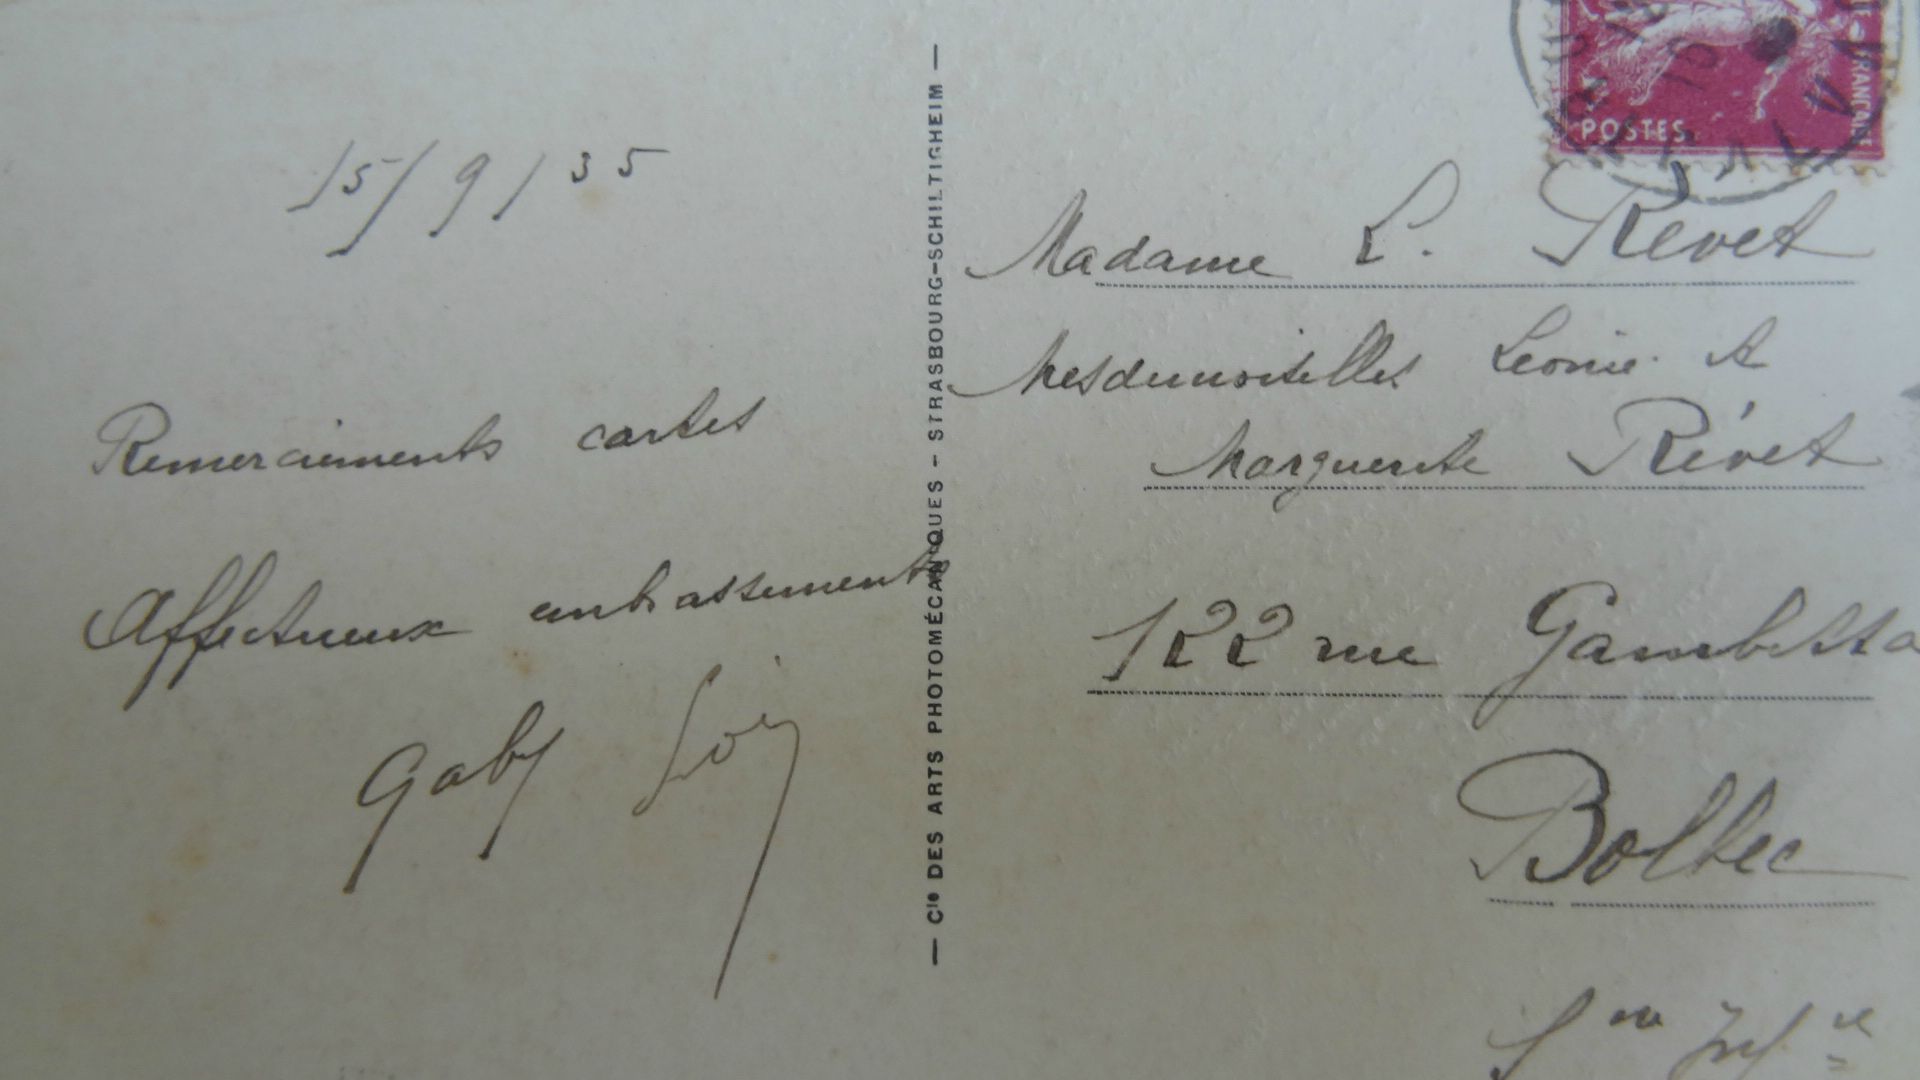 15/9/35
Remerciements cartes
Affectueux embrassements
Gaby
— Cie DES ARTS PHOTOMÉCANIQUES - STRASBOURG-SCHILTIGHEIM —
POSTES
FRANÇAISE
Madame L. Revet
Mesdemoiselles Leonie et
Marguerite Révet
122 rue Gambetta
Bolbec
Sne Infre